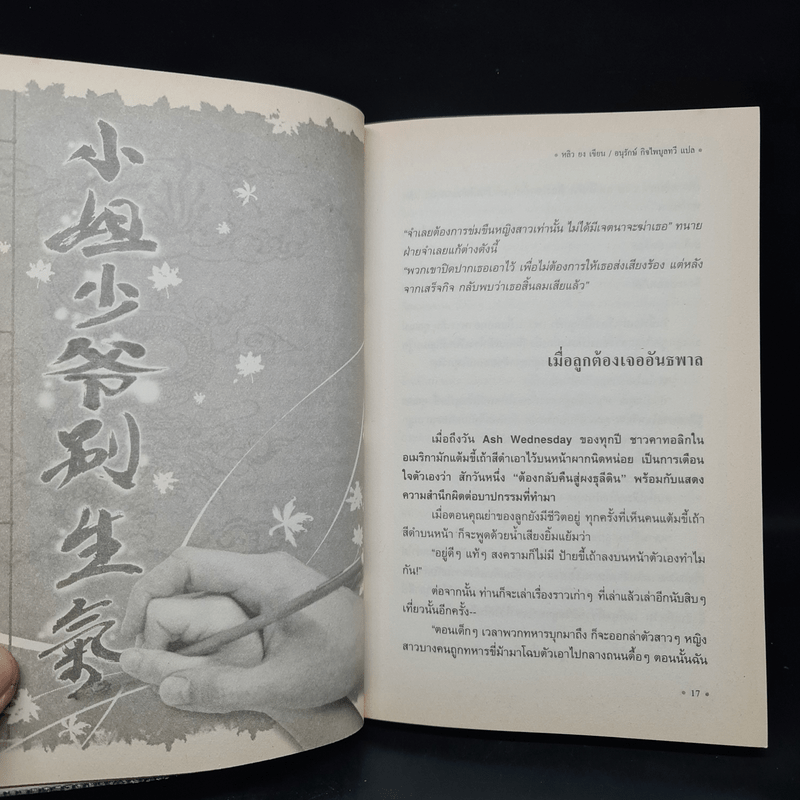 小姐少爷别生氣
• หลิว ยง เขียน / อนุรักษ์ กิจไพบูลทวี แปล •
“จำเลยต้องการข่มขืนหญิงสาวเท่านั้น ไม่ได้มีเจตนาจะฆ่าเธอ” ทนาย
ฝ่ายจำเลยแก้ต่างดังนี้
“พวกเขาปิดปากเธอเอาไว้ เพื่อไม่ต้องการให้เธอส่งเสียงร้อง แต่หลัง
จากเสร็จกิจ กลับพบว่าเธอสิ้นลมเสียแล้ว”
เมื่อลูกต้องเจออันธพาล
เมื่อถึงวัน Ash Wednesday ของทุกปี ชาวคาทอลิกใน
อเมริกามักแต้มขี้เถ้าสีดำเอาไว้บนหน้าผากนิดหน่อย เป็นการเตือน
ใจตัวเองว่า สักวันหนึ่ง “ต้องกลับคืนสู่ผงธุลีดิน” พร้อมกับแสดง
ความสำนึกผิดต่อบาปกรรมที่ทำมา
เมื่อตอนคุณย่าของลูกยังมีชีวิตอยู่ ทุกครั้งที่เห็นคนแต้มขี้เถ้า
สีดำบนหน้า ก็จะพูดด้วยน้ำเสียงยิ้มแย้มว่า
“อยู่ดีๆ แท้ๆ สงครามก็ไม่มี ป้ายขี้เถ้าลงบนหน้าตัวเองทำไม
กัน!”
ต่อจากนั้น ท่านก็จะเล่าเรื่องราวเก่าๆ ที่เล่าแล้วเล่าอีกนับสิบๆ
เที่ยวนั้นอีกครั้ง--
“ตอนเด็กๆ เวลาพวกทหารบุกมาถึง ก็จะออกล่าตัวสาวๆ หญิง
สาวบางคนถูกทหารขี่ม้ามาโฉบตัวเอาไปกลางถนนดื้อๆ ตอนนั้นฉัน
• 17 •